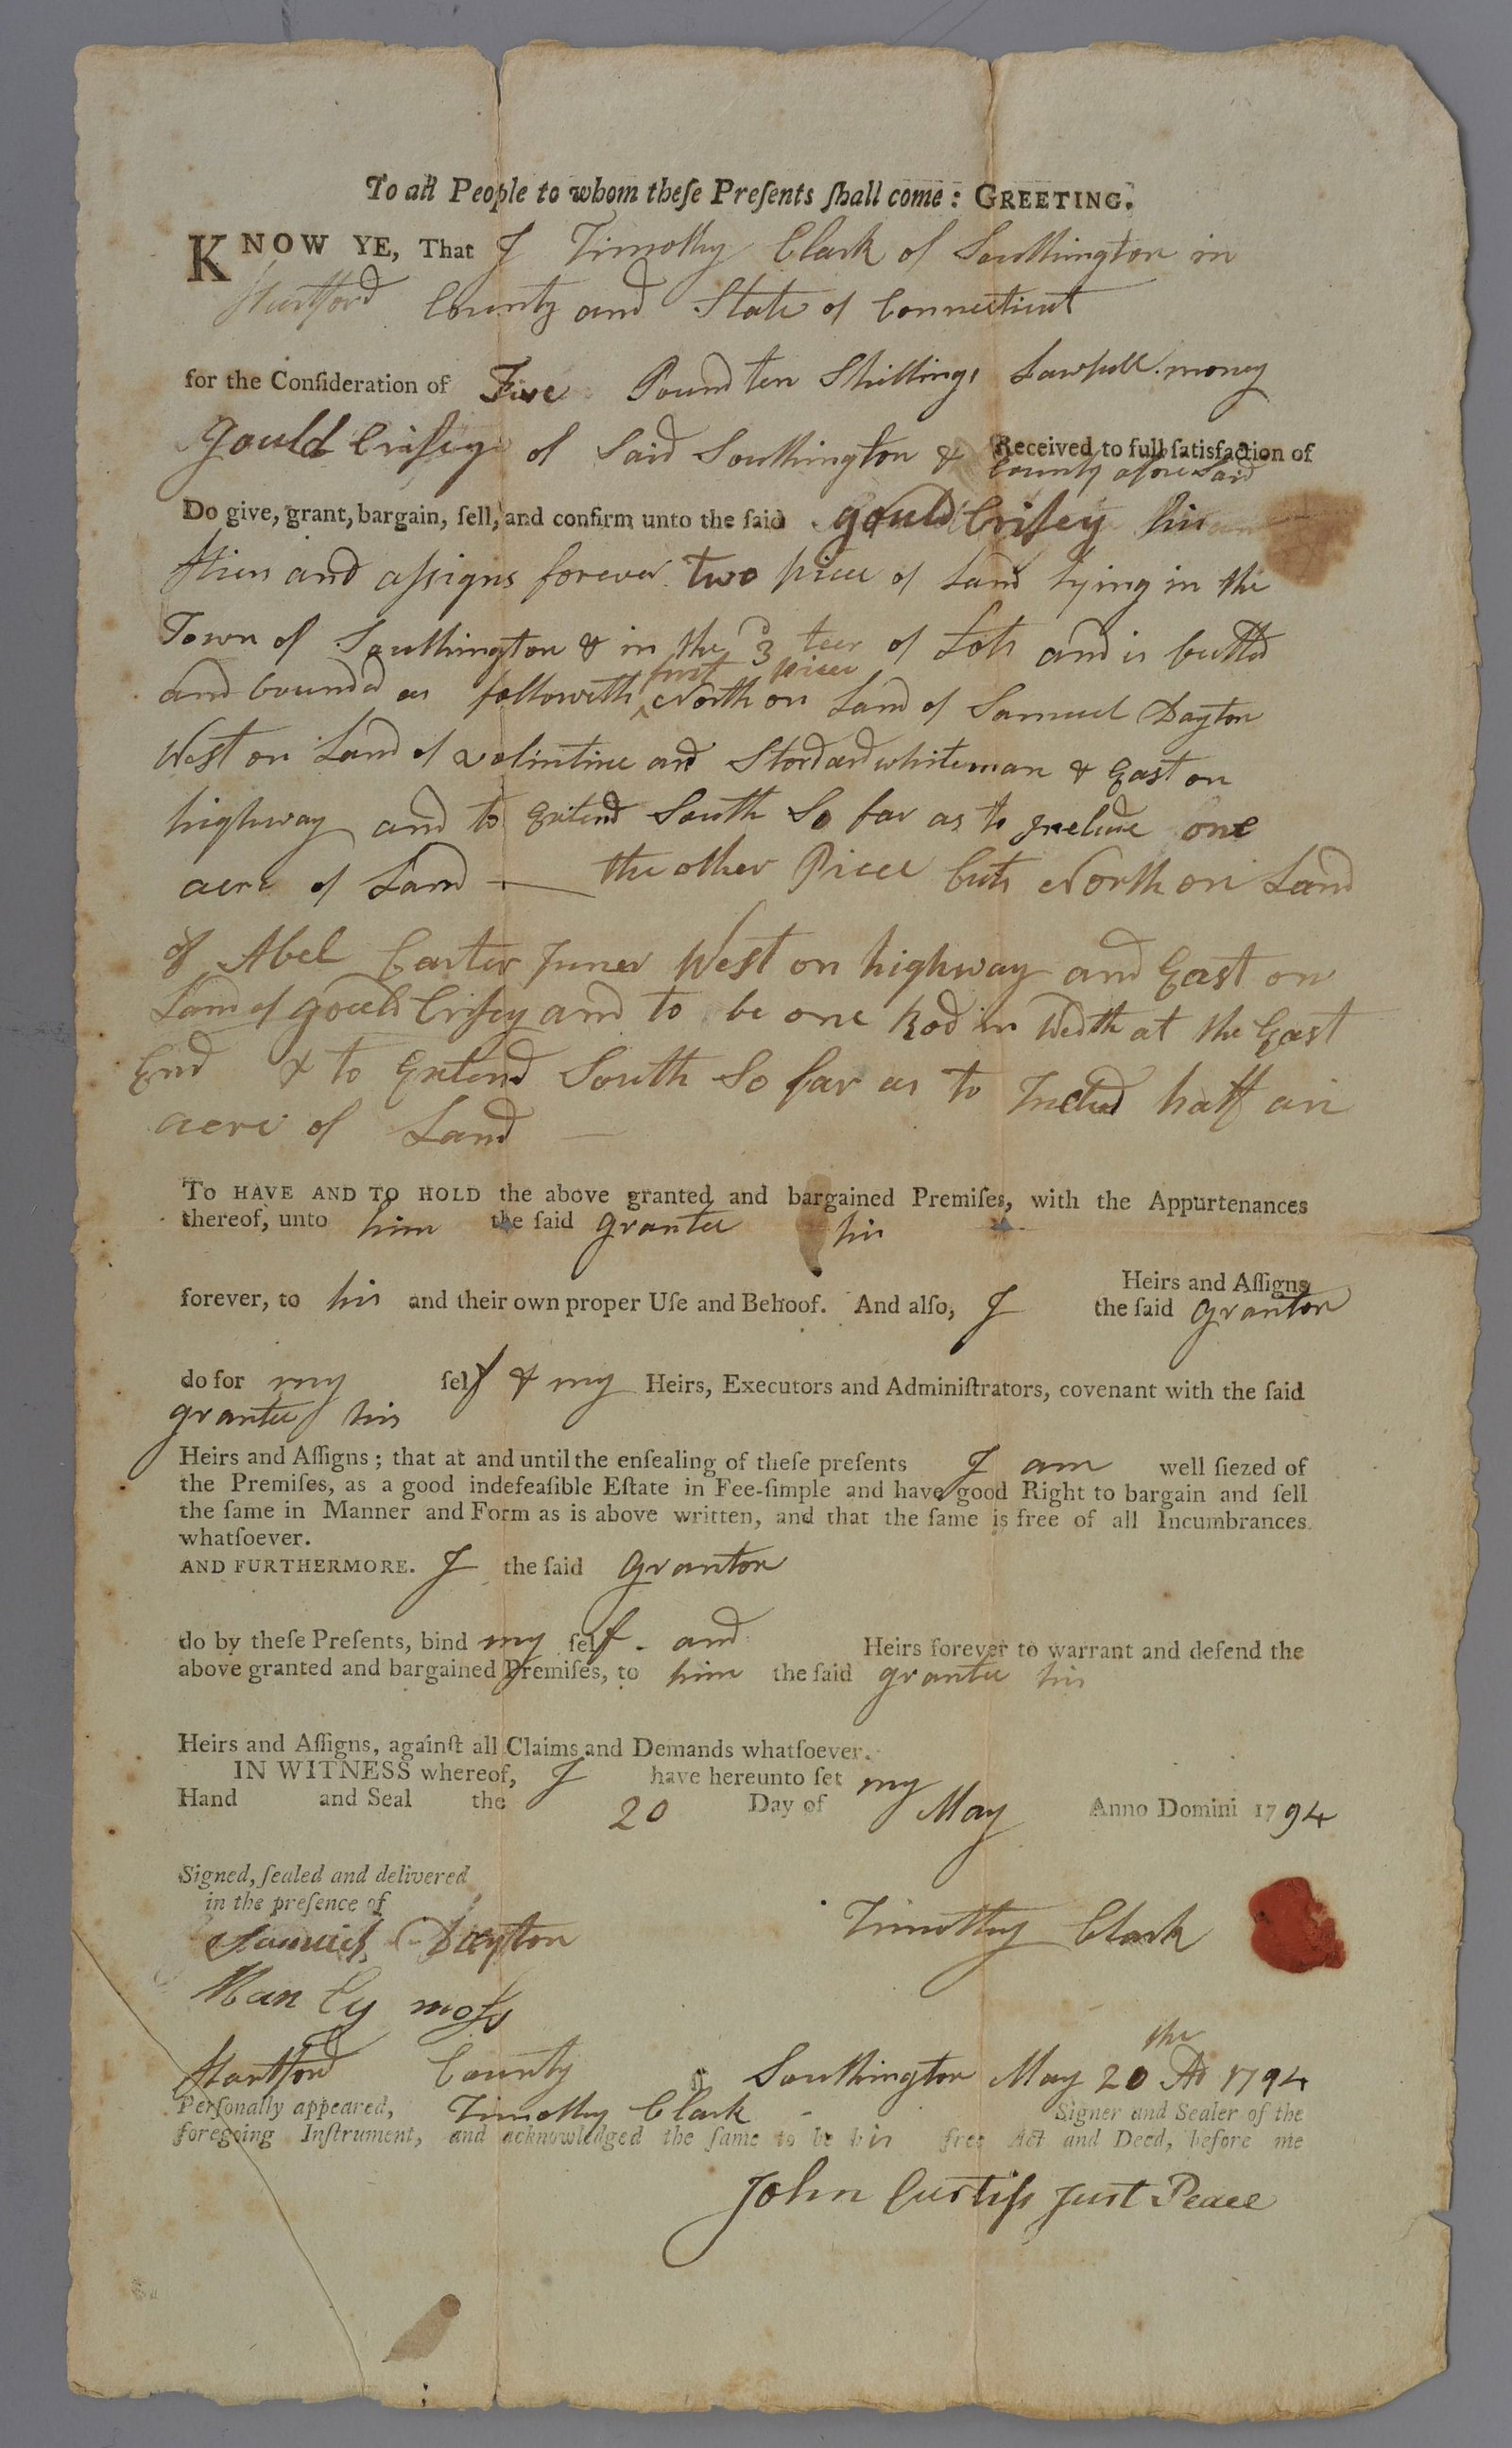 To all People to whom theſe Preſents ſhall come: GREETING.
KNOW YE, That I Timothy Clark of Southington in
Hartford County and State of Connecticut
for the Conſideration of Five Pound ten Shillings Lawfull money
Received to full ſatisfaction of
Gould Criſsey of Said Southington & County aforeSaid
Do give, grant, bargain, ſell, and confirm unto the ſaid gould Criſsey his
Hiers and aſsigns forever two piece of Land lying in the
Town of Southington & in the 3d teer of Lots and is butted
first piece
and bounded as followeth ^ North on Land of Samuel Dayton
West on Land of valintine and Stordard whiteman & East on
highway and to Extend South So far as to Include one
acre of Land — the other Piece buts North on Land
of Abel Carter Juner West on highway and East on
Land of gould Criſsey and to be one Rod in Wedth at the East
End & to Extend South So far as to Includ half an
acre of Land —
To HAVE AND TO HOLD the above granted and bargained Premiſes, with the Appurtenances
thereof, unto him the ſaid grantee his
Heirs and Aſſigns
forever, to his and their own proper Uſe and Behoof. And also, I the ſaid grantor
do for my ſelf & my Heirs, Executors and Adminiſtrators, covenant with the ſaid
grantee his
Heirs and Aſſigns; that at and until the enſealing of theſe preſents I am well ſiezed of
the Premiſes, as a good indefeaſible Eſtate in Fee-ſimple and have good Right to bargain and ſell
the ſame in Manner and Form as is above written, and that the ſame is free of all Incumbrances
whatſoever.
AND FURTHERMORE. I the ſaid grantor
do by theſe Preſents, bind my ſelf and Heirs forever to warrant and defend the
above granted and bargained Premiſes, to him the ſaid grantee his
Heirs and Aſſigns, againſt all Claims and Demands whatſoever.
IN WITNESS whereof, I have hereunto ſet my
Hand and Seal the 20 Day of May Anno Domini 1794
Signed, ſealed and delivered
in the preſence of
Samuel Dayton Timothy Clark
Manly moſs
Hartford County Southington May 20 the AD 1794
Perſonally appeared, Timothy Clark Signer and Sealer of the
foregoing Inſtrument, and acknowledged the ſame to be his free Act and Deed, before me
John Curtiſs Just Peace